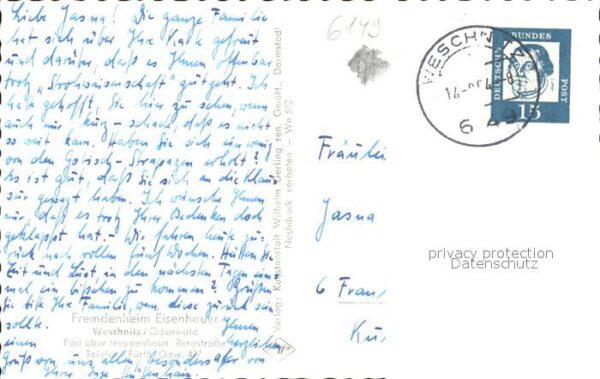 Liebe Jasna! Die ganze Familie
hat sich über Ihre Karte gefreut
und darüber, daß es Ihnen offenbar
trotz "Strohwissenschaft" gut geht. Ich
habe gehofft, Sie hier zu sehen, wenn
auch nur kurz - schade, daß es nicht
so weit kam. Haben Sie sich ein wenig
von den Gotisch-Strapazen erholt?
Es ist gut, daß Sie sich an die Klau-
sur gewagt haben. Ich wünsche Ihnen
nur, daß es trotz Ihrer Bedenken doch
geklappt hat. - Wir fahren heute zu-
rück nach vollen fünf Wochen. Hätten Sie
Zeit und Lust, in den nächsten Tagen ein-
mal ein bißchen zu kommen? Grüßen
Sie bitte Ihre Familie, wenn diese zurück sein
sollte. Ihnen
einen herzlichen
Gruß von uns allen, besonders aber von
Ihrer
Fremdenheim Eisenhauer
Weschnitz/Odenwald
Post über Heppenheim Bergstraße
Telefon Fürth/Odw.
Verlag: Kunstanstalt Wilhelm Gerling sen. GmbH., Darmstadt
Nachdruck verboten - Wn 502
6149
WESCHNITZ
6149
DEUTSCHE BUNDESPOST
15
Fräulei
Jasna
6 Fran
Ku
privacy protection
Datenschutz